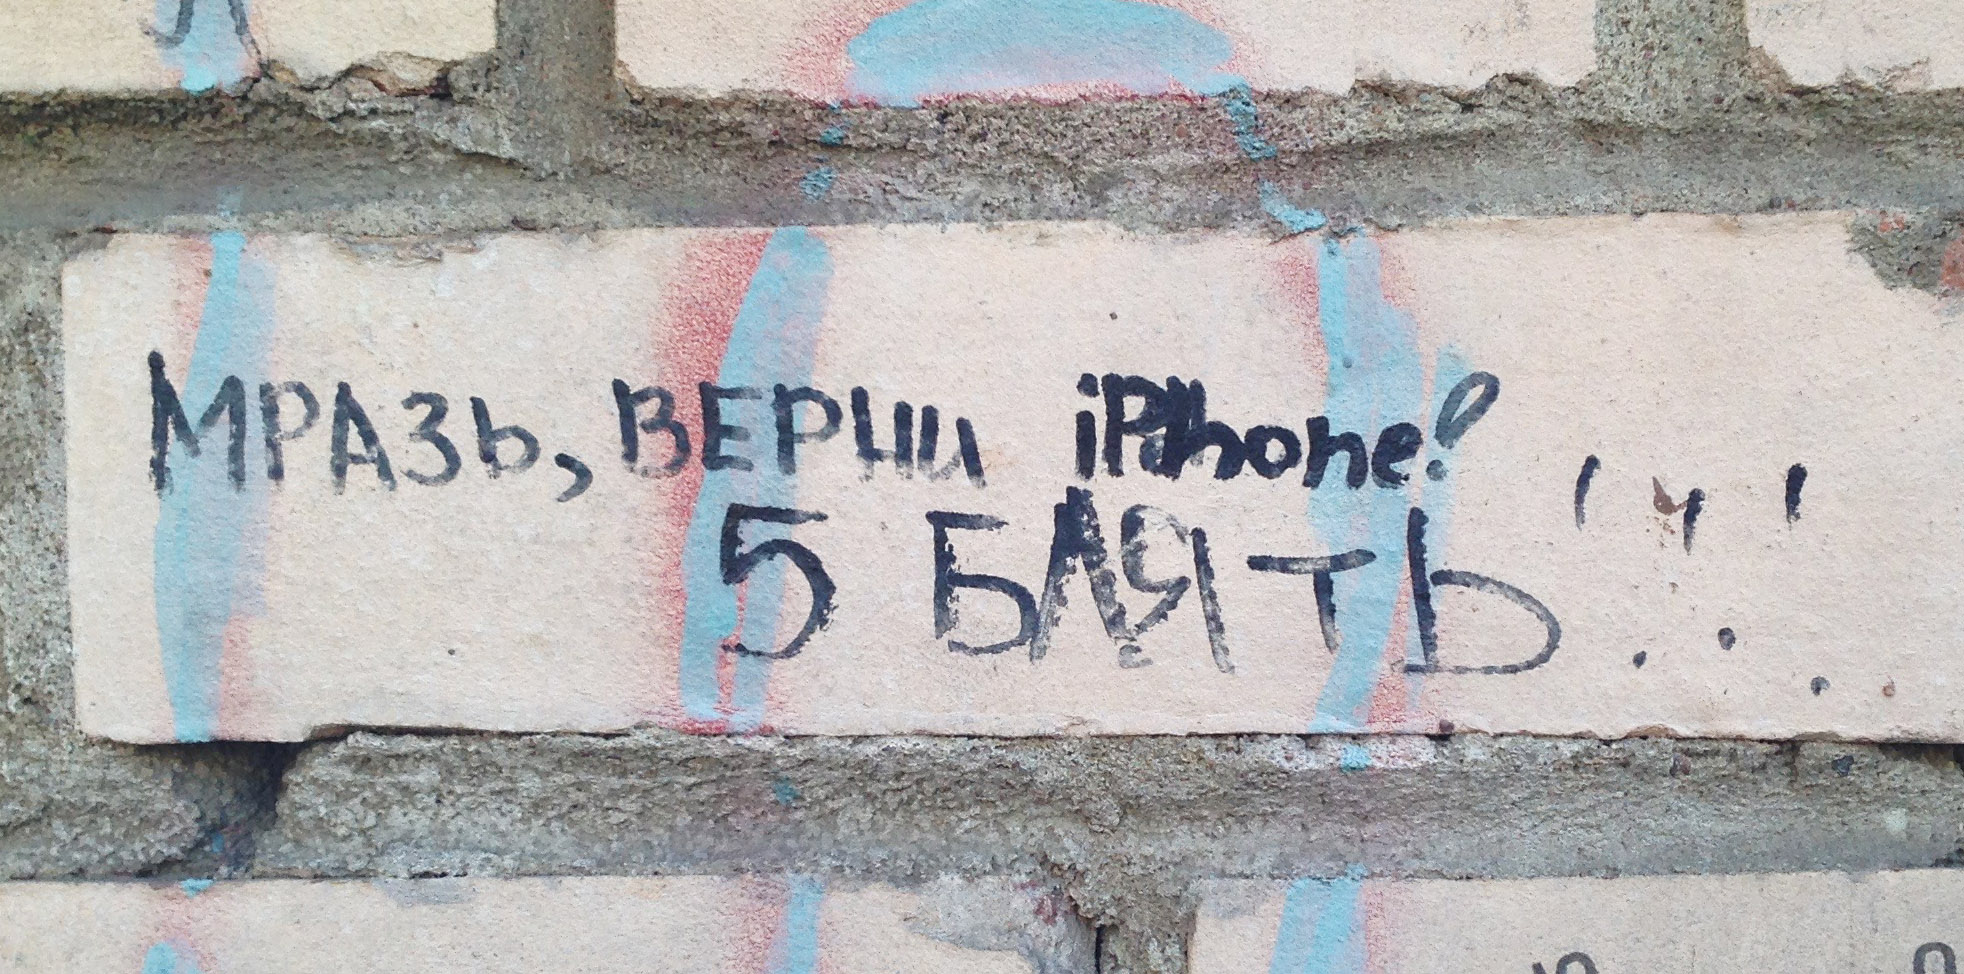 Мразь, верни iPhone!
5 БЛЯТЬ!!!